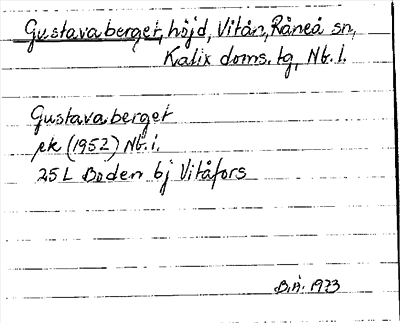 Gustavaberget, höjd, Vitån, Råneå sn,
Kalix doms. tg, Nb. l.
Gustavaberget
ek (1952) Nb. l.
25 L Boden bj Vitåfors
B.Å. 1973